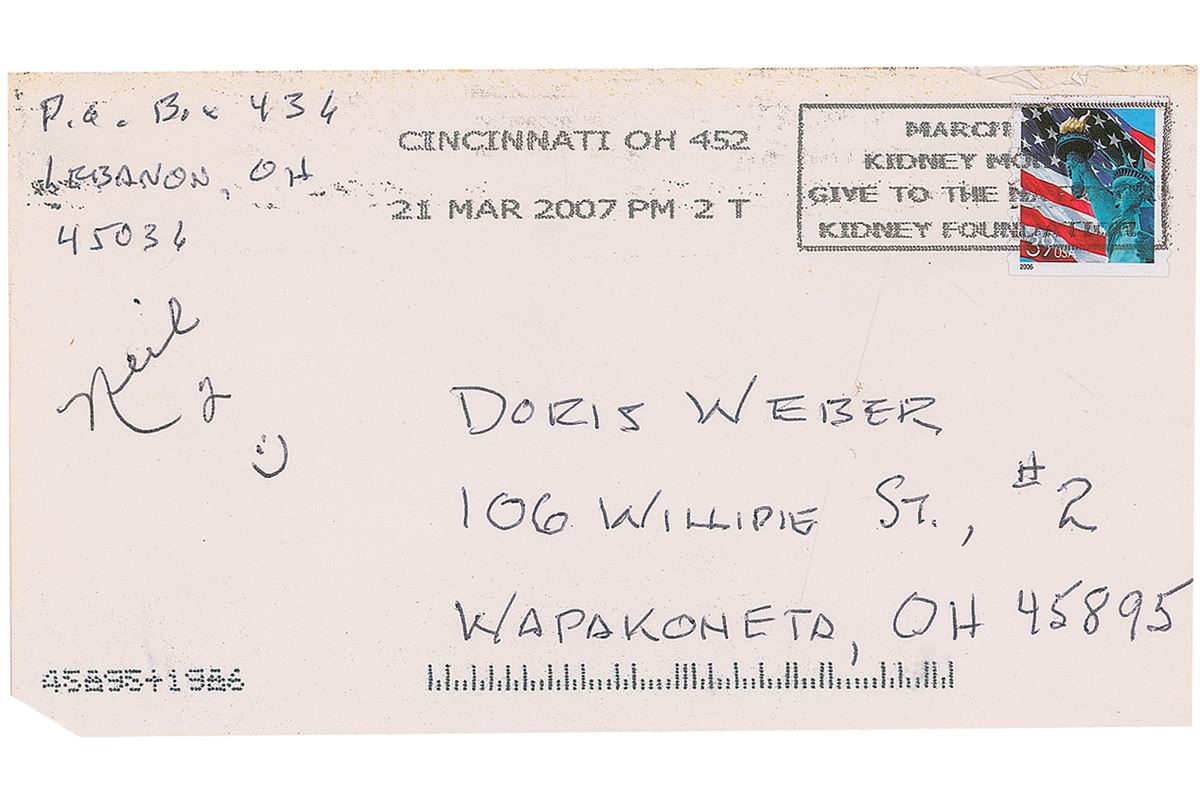 P.O. Box 436
LEBANON, OH
45036
CINCINNATI OH 452
21 MAR 2007 PM 2 T
MARCH
KIDNEY MON
GIVE TO THE
KIDNEY FOUNDATION
39 USA
2006
Neil
:)
DORIS WEBER
106 WILLIPIE ST., #2
WAPAKONETA, OH 45895
45895+1986